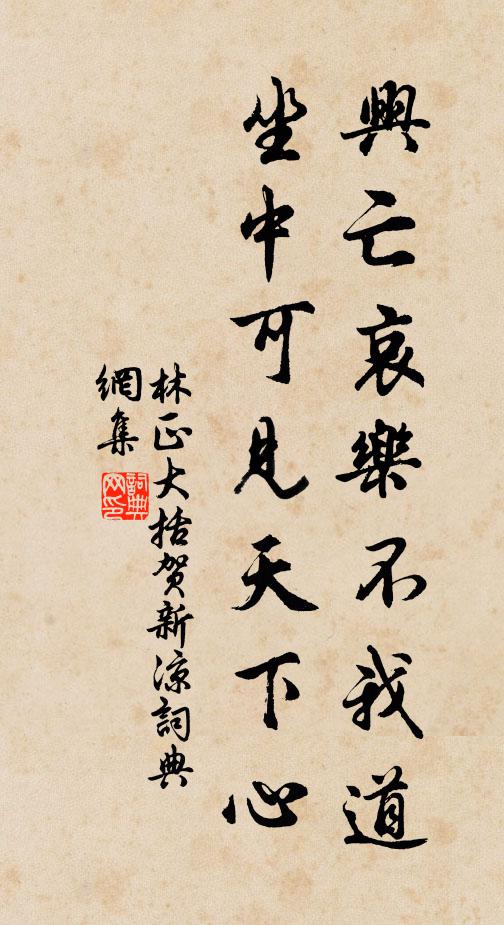 興亡哀樂不我遁
坐中可見天下心
林正大括賀新涼詞典
網集
詞典網印